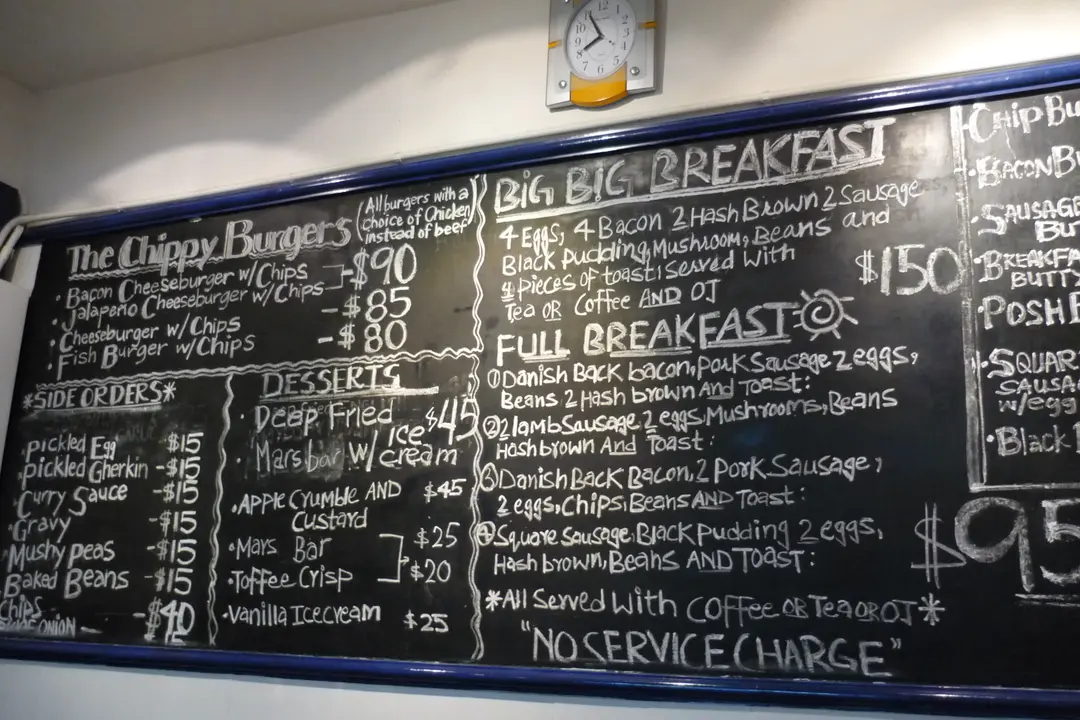 The Chippy Burgers
(All burgers with a
choice of Chicken
instead of beef
• Bacon Cheeseburger w/Chips
• Jalapeño Cheeseburger w/Chips - $90
• Cheeseburger w/Chips - $85
• Fish Burger w/Chips - $80
*SIDE ORDERS*
Pickled Egg $15
pickled Gherkin - $15
Curry Sauce - $15
• Gravy - $15
Mushy peas - $15
Baked Beans - $15
Chips - $40
ONION
DESSERTS
• Deep Fried $45
Mars bar w/ Ice cream
• Apple Crumble AND $45
Custard
• Mars Bar $25
• Toffee Crisp $20
• Vanilla Icecream $25
BIG BIG BREAKFAST
4 Eggs, 4 Bacon 2 Hash Brown 2 Sausage
Black pudding, Mushroom, Beans and
4 pieces of toast: Served with $150
Tea OR Coffee AND OJ
FULL BREAKFAST
① Danish Back bacon, Pork Sausage 2 eggs,
Beans 2 Hash brown And Toast:
② 2 lamb Sausage, 2 eggs, Mushrooms, Beans
Hash brown And Toast:
③ Danish Back Bacon, 2 Pork Sausage,
2 eggs, Chips, Beans AND Toast:
④ Square Sausage, Black Pudding 2 eggs,
Hash brown, Beans AND Toast:
*All Served with COFFEE OR Tea OR OJ*
"NO SERVICE CHARGE"
• Chip Bu
• BACON BU
• SAUSAGE
BU
• BREAKFA
BUTTY
• POSH
• SQUAR
SAUSA
w/egg
• Black
$95
12
1
2
3
4
5
6
7
8
9
10
11